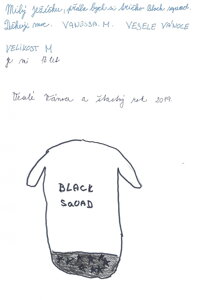 Milý Ježíšku, přála bych si tričko Black squad
Děkuji moc. VANESSA M. VESELÉ VÁNOCE
VELIKOST M
je mi let
Veselé Vánoce a šťastný rok 2019
BLACK
SQUAD